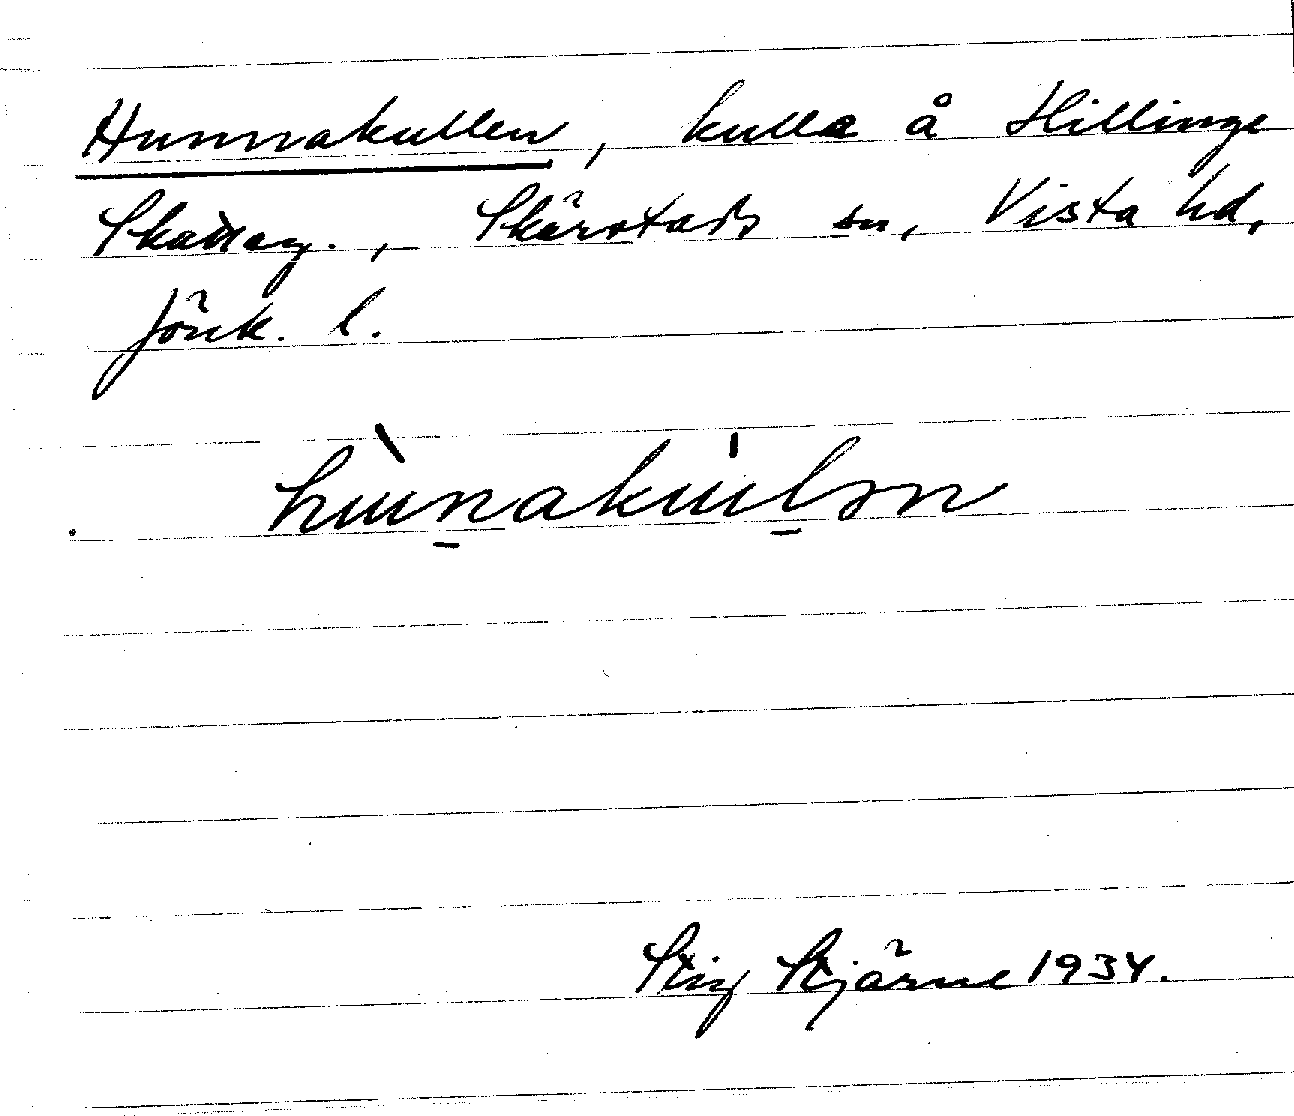 Hunnakullen, kulle å Hillinge
Skatteg., Skärstads sn, Vista hd,
Jönk. l.
hùnakúlən
Stig Stjärne 1934.